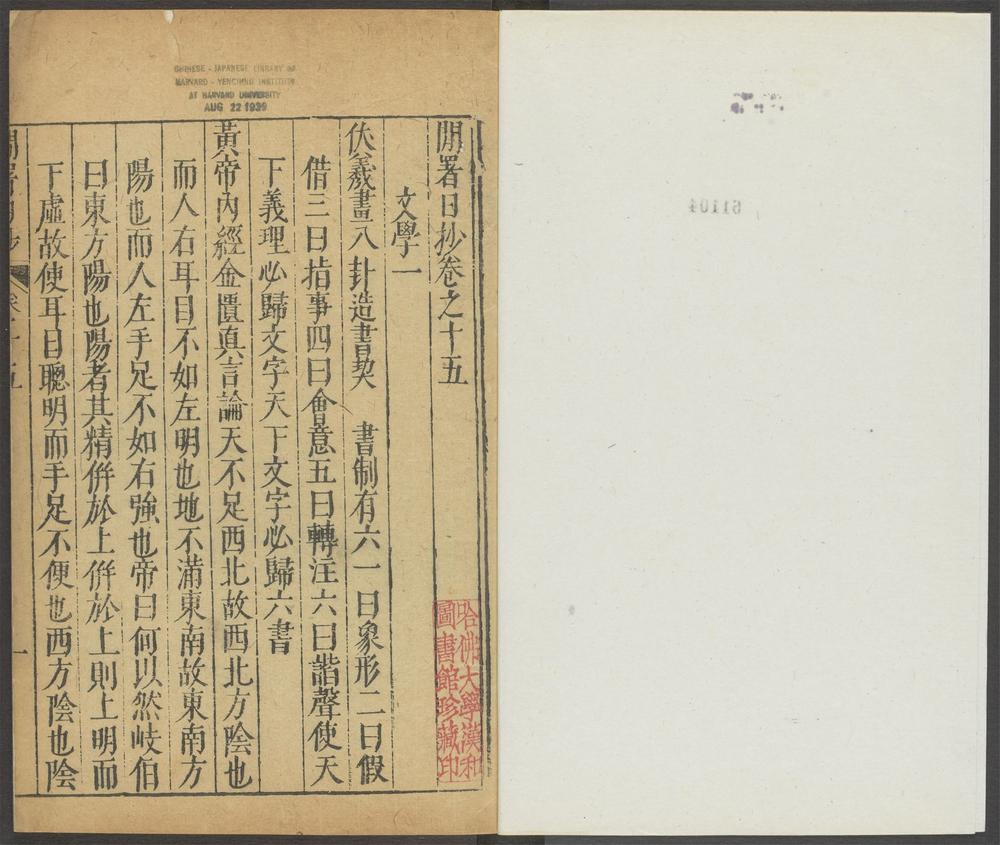 CHINESE - JAPANESE LIBRARY OF
HARVARD - YENCHING INSTITUTE
AT HARVARD UNIVERSITY
AUG 22 1939
61104
閒署日抄卷之十五
文學一
伏羲畫八卦造書契 書制有六一曰象形二曰假
借三曰指事四曰會意五曰轉注六曰諧聲使天
下義理必歸文字天下文字必歸六書
黃帝內經金匱真言論天不足西北故西北方陰也
而人右耳目不如左明也地不滿東南故東南方
陽也而人左手足不如右強也帝曰何以然岐伯
曰東方陽也陽者其精併於上併於上則上明而
下虛故使耳目聰明而手足不便也西方陰也陰
閒署日抄 卷十五
一
哈佛大學漢和
圖書館珍藏印